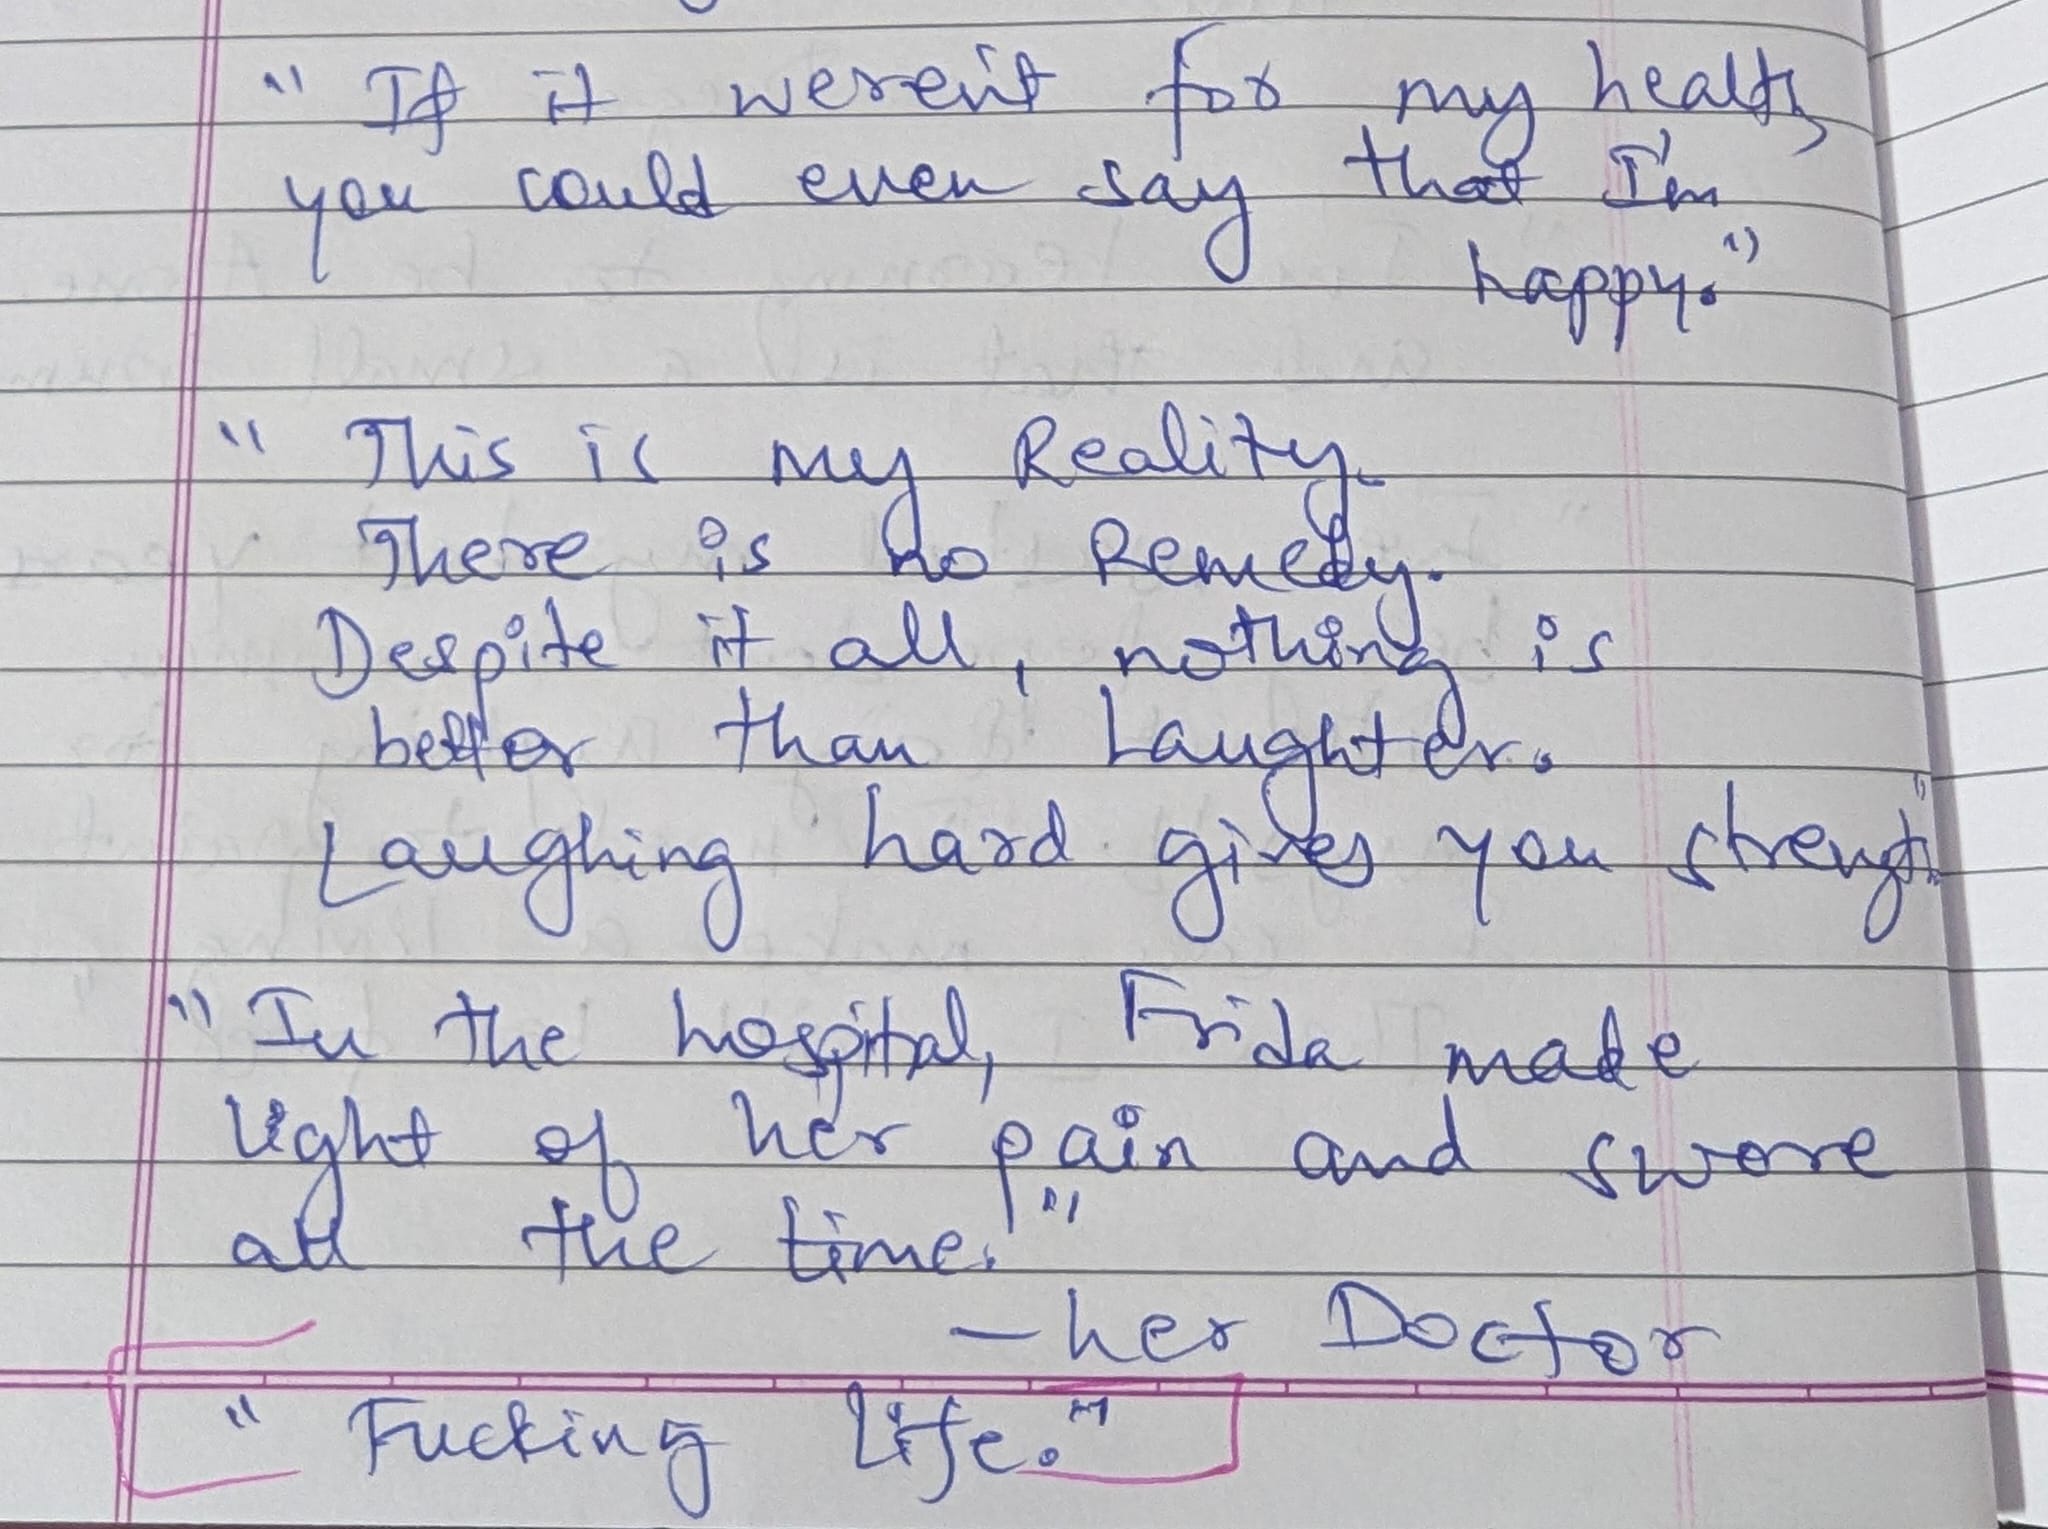 "If it weren't for my health
you could even say that I'm
happy."
"This is my Reality.
There is no Remedy.
Despite it all, nothing is
better than Laughter.
Laughing hard gives you strength"
"In the hospital, Frida made
light of her pain and swore
all the time."
- her Doctor
"Fucking life."